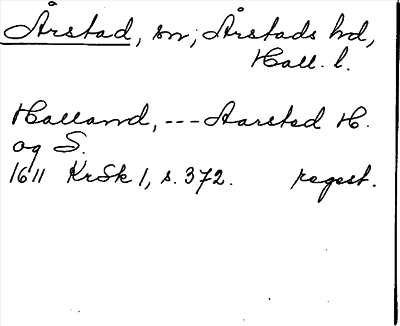 Årstad, sn; Årstads hd,
Hall. l.
Halland, --- Aarstad H.
og S.
1611 KrSk 1, s. 372. regest.